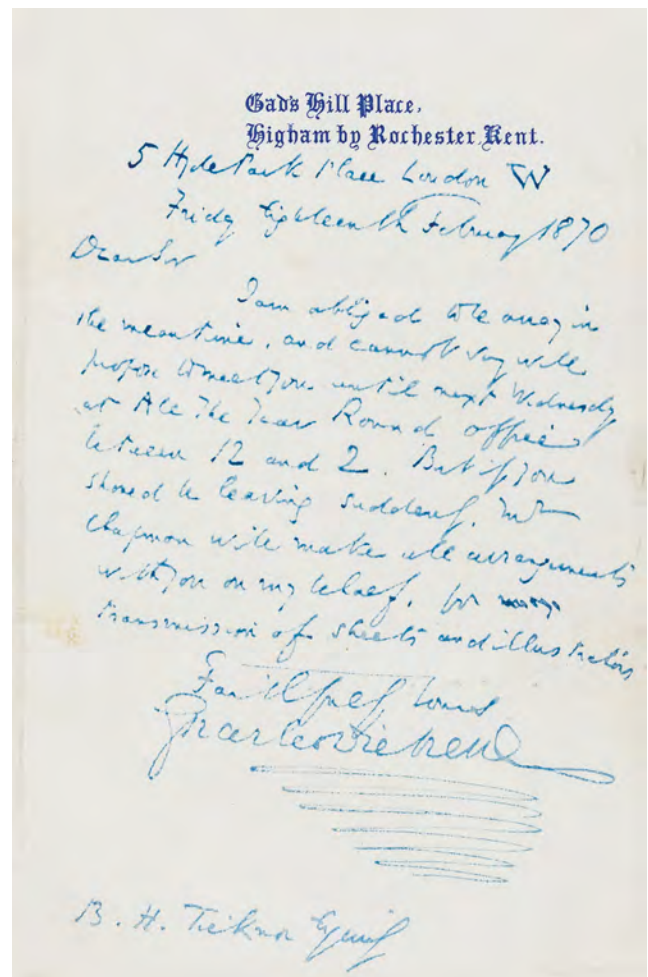 Gad's Hill Place,
Higham by Rochester, Kent.
5 Hyde Park Place London W
Friday Eighteenth February 1870
Dear Sir
I am obliged to be away in
the meantime, and cannot say will
propose to meet you until next Wednesday
at All The Year Round office
between 12 and 2. But if you
should be leaving suddenly, Mr
Chapman will make all arrangements
with you on my behalf, for
transmission of sheets and illustrations
Faithfully Yours
Charles Dickens
B. H. Ticknor Esquire